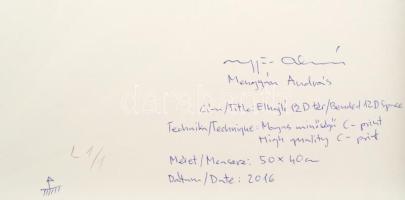 Mengyán András
Cím/Title: Elhajló 12D tér/Bended 12D Space
Technika/Technique: Magas minőségű C-print
High quality C-print
Méret/Measure: 50 x 40 cm
Dátum/Date: 2016
L 1/1